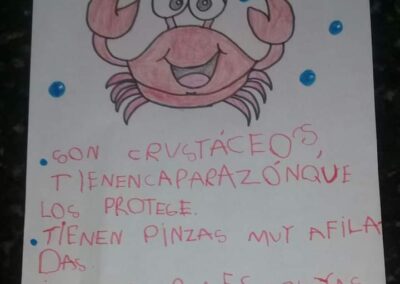 • SON CRUSTÁCEOS,
TIENENCAPARAZÓNQUE
LOS PROTEGE.
• TIENEN PINZAS MUY AFILA
DAS.